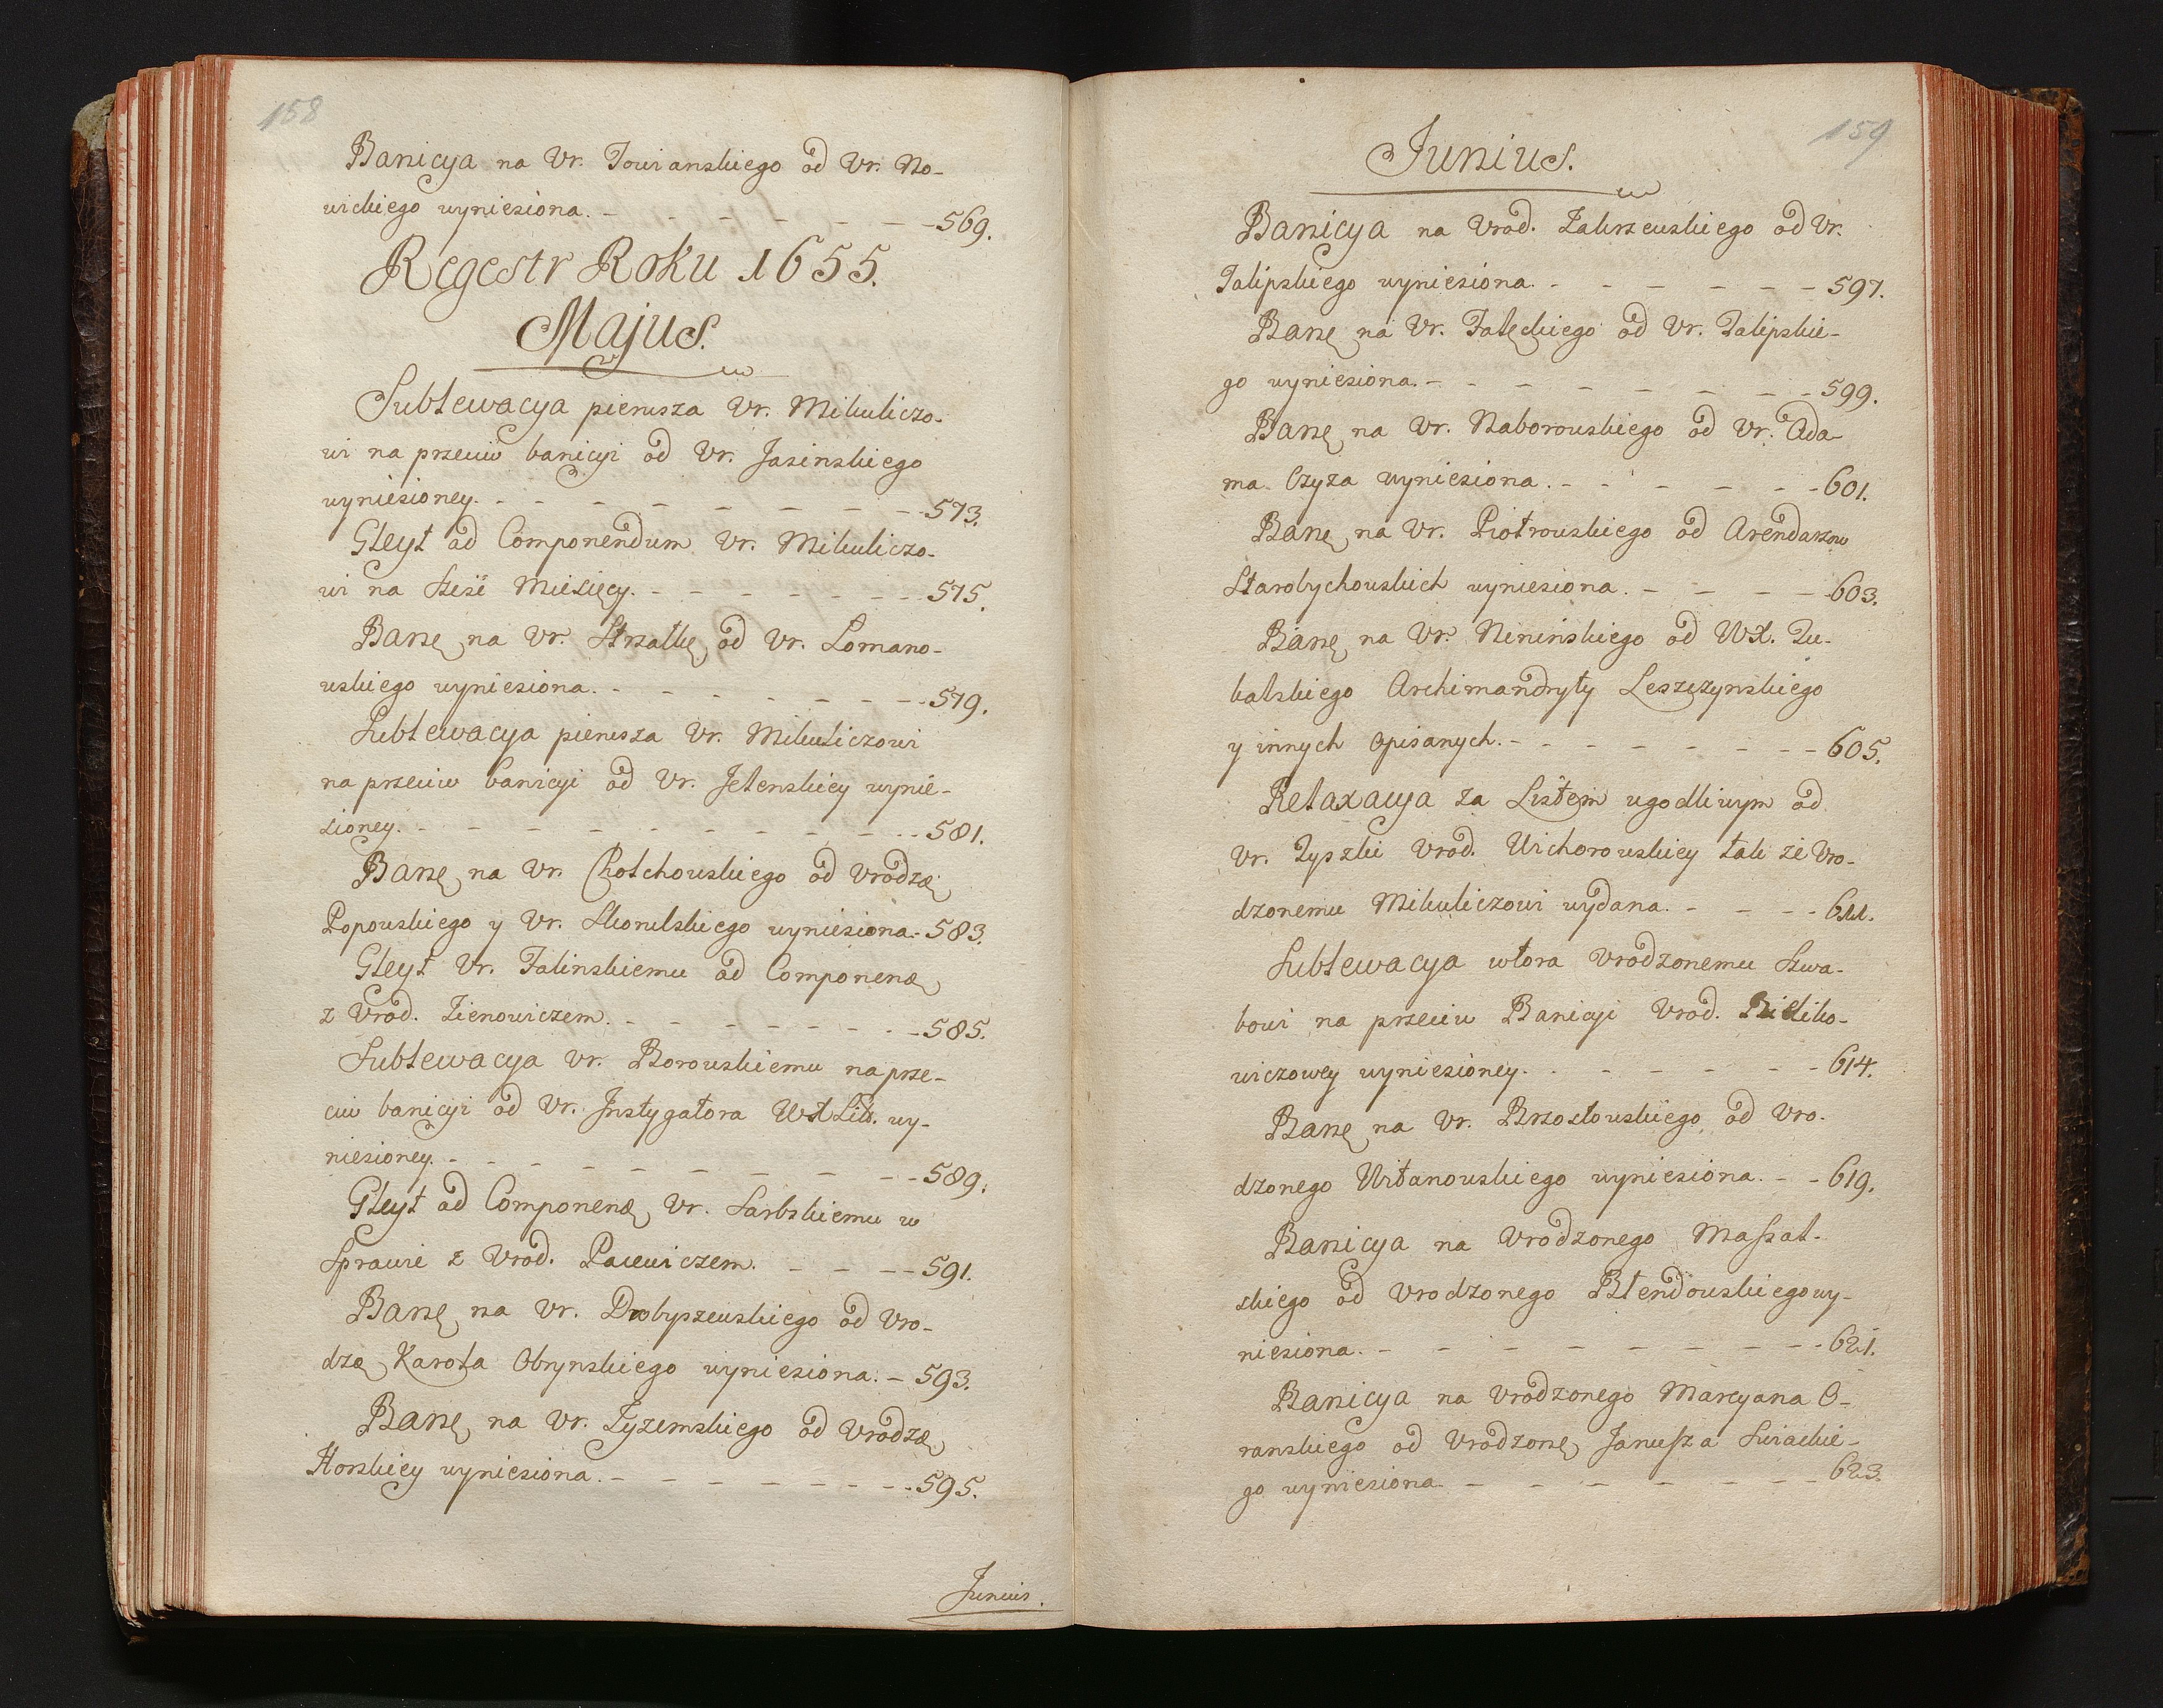 158
Banicya na Ur. Towianskiego od Ur. No-
wickiego wyniesiona. - - - - - - - 569.
Regestr Roku 1655.
Majus.
Sublewacya pierwsza Ur. Mikuliczo-
wi na przeciw banicyi od Ur. Jasinskiego
wyniesioney. - - - - - - - - 573.
Gleyt ad Componendum Ur. Mikuliczo-
wi na sześć Miesięcy. - - - - - - - 575.
Banę na Ur. Strzałkę od Ur. Lomano-
wskiego wyniesiona. - - - - - - - 579.
Sublewacya pierwsza Ur. Mikuliczowi
na przeciw banicyi od Ur. Jelenskiey wynie-
sioney. - - - - - - - - - - 581.
Banę na Ur. Chołchowskiego od Urodzę
Popowskiego y Ur. Skorulskiego wyniesiona. 583.
Gleyt Ur. Falinskiemu ad Componenę
z Urod. Zienowiczem. - - - - - - - 585.
Sublewacya Ur. Borowskiemu na prze-
ciw banicyi od Ur. Instygatora WXLitt. wy-
niesioney. - - - - - - - - - 589.
Gleyt ad Componenę Ur. Sarbskiemu w
Sprawie z Urod. Pacewiczem. - - - - 591.
Banę na Ur. Drobyszewskiego od Uro-
dzę Karola Obrynskiego wyniesiona. - 593.
Banę na Ur. Zyzemskiego od Urodzę
Horskiey wyniesiona. - - - - - - - 595.
Junius.
159
Junius.
Banicya na Urod. Zakrzewskiego od Ur.
Talipskiego wyniesiona. - - - - - - 597.
Banę na Ur. Fałęckiego od Ur. Talipskie-
go wyniesiona. - - - - - - - - 599.
Banę na Ur. Naborowskiego od Ur. Ada-
ma Czyza wyniesiona. - - - - - - 601.
Banę na Ur. Piotrowskiego od Arendarzow
Starobychowskich wyniesiona. - - - - 603.
Banę na Ur. Ninińskiego od WX. Du-
balskiego Archimandryty Leszczynskiego
y innych Opisanych. - - - - - - - 605.
Relaxacya za Listem ugodliwym od
Ur. Zyszki Urod. Wichorowskiey tak że Uro-
dzonemu Mikuliczowi wydana. - - - - 611.
Sublewacya wtora Urodzonemu Szwa-
bowi na przeciw Banicyi Urod. Bieliko-
wiczowey wyniesioney. - - - - - - 614.
Banę na Ur. Brzostowskiego od Uro-
dzonego Witanowskiego wyniesiona. - - 619.
Banicya na Urodzonego Maszal-
skiego od Urodzonego Błendowskiego wy-
niesiona. - - - - - - - - - 621.
Banicya na Urodzonego Marcyana O-
ranskiego od Urodzonę Janusza Swiackie-
go wyniesiona. - - - - - - - 623.